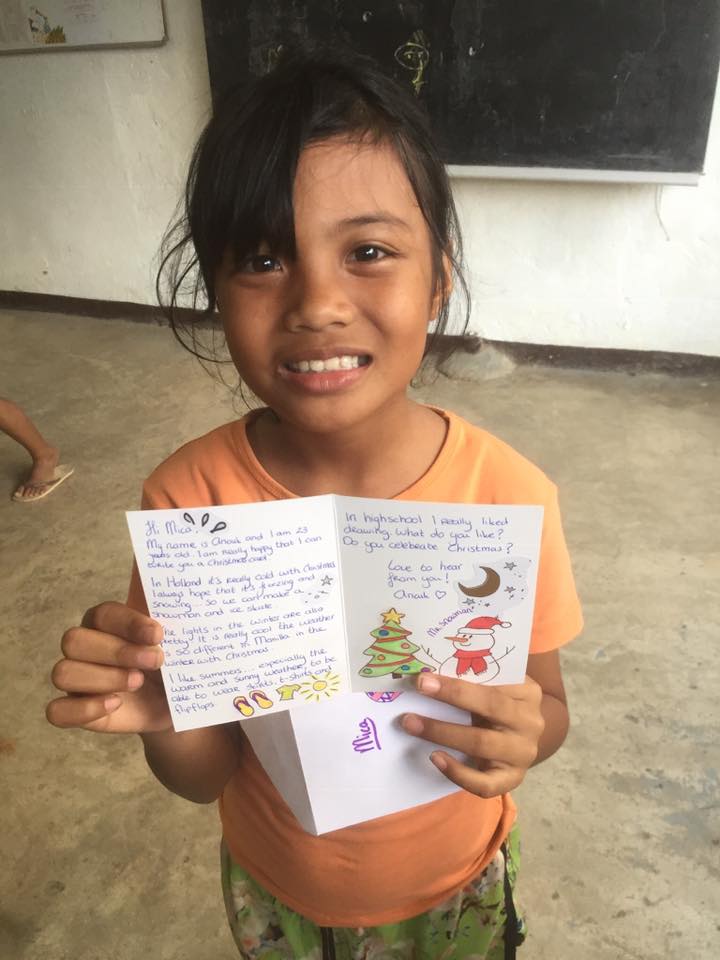 Hi Mica,
My name is Anouk and I am 23
years old. I am really happy that I can
write you a christmas card.
In Holland it's really cold with Christmas
I always hope that it's freezing and
snowing... so we can make a
snowman and ice skate.
The lights in the winter are also
pretty. It is really cool the weather
is so different in Manilla in the
winter with Christmas.
I like summers... especially the
warm and sunny weather, to be
able to wear skirts, t-shirts and
flipflops.
In highschool I really liked
drawing. What do you like?
Do you celebrate Christmas?
Love to hear
from you!
Anouk
Mr. Snowman
Mica